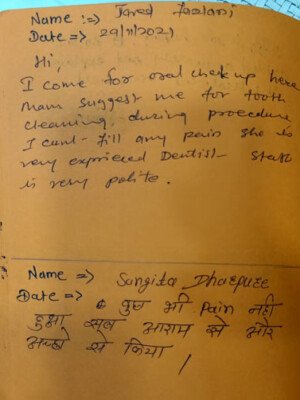 Name :⇒ Jared
Date ⇒ 29/11/2021
Hi,
I come for oral checkup here
Mam suggest me for tooth
cleaning. during procedure
I cant fill any pain she is
very exprieced Dentist. staff
is very polite.
Name ⇒ Sangita Dharpure
Date ⇒
कुछ भी Pain नही
हुआ सब आराम से और
अच्छे से किया